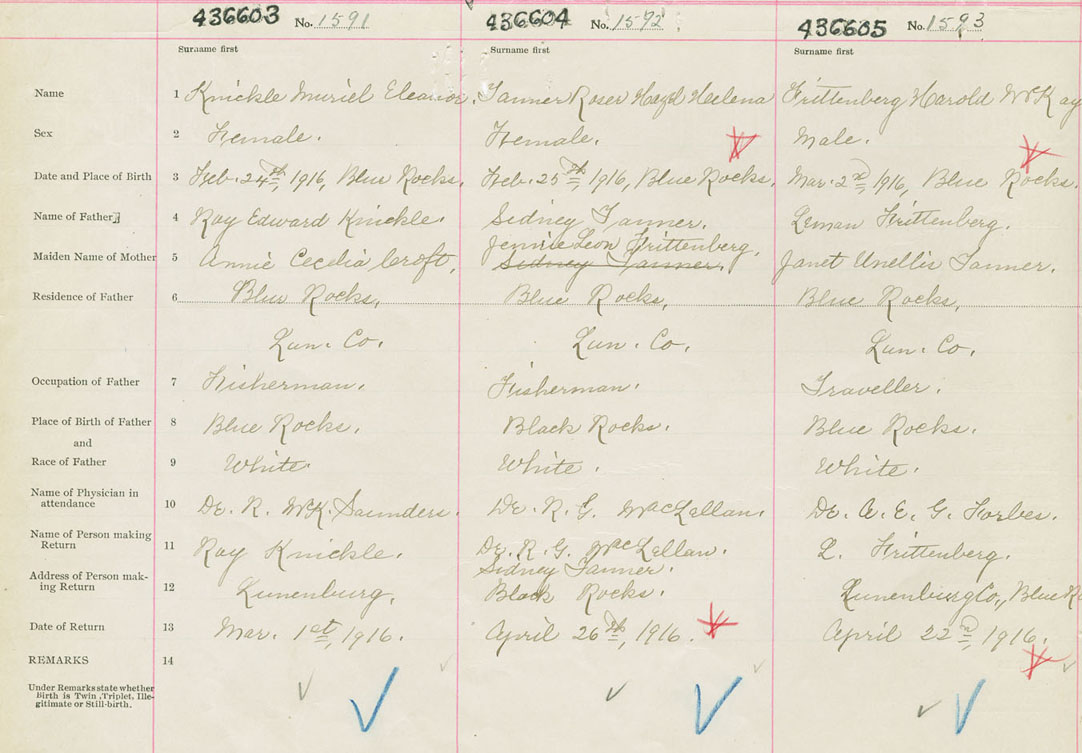 436603 No. 1591 436604 No. 1592 436605 No. 1593
Surname first Surname first Surname first
Name 1 Knickle Muriel Eleanor. Tanner Roser Hazel Helena Frittenberg Harold McKay
Sex 2 Female. Female. Male.
Date and Place of Birth 3 Feb. 24th, 1916, Blue Rocks. Feb. 25th, 1916, Blue Rocks. Mar. 2nd, 1916, Blue Rocks.
Name of Father 4 Roy Edward Knickle. Sidney Tanner. Leman Frittenberg.
Jennie Leon Frittenberg.
Maiden Name of Mother 5 Annie Cecelia Croft. Sidney Tanner. Janet Tanner.
Residence of Father 6 Blue Rocks, Blue Rocks, Blue Rocks,
Lun. Co. Lun. Co. Lun. Co.
Occupation of Father 7 Fisherman. Fisherman. Traveller.
Place of Birth of Father 8 Blue Rocks. Black Rocks. Blue Rocks.
and
Race of Father 9 White. White. White.
Name of Physician in
attendance 10 Dr. R. McK. Saunders. Dr. R. G. MacLellan. Dr. A. E. G. Forbes.
Name of Person making
Return 11 Roy Knickle. Dr. R. G. MacLellan. L. Frittenberg.
Sidney Tanner.
Address of Person mak-
ing Return 12 Lunenburg. Black Rocks. Lunenburg Co., Blue
Date of Return 13 Mar. 1st, 1916. April 26th, 1916. April 22nd, 1916.
REMARKS 14
Under Remarks state whether
Birth is Twin, Triplet, Ille-
gitimate or Still-birth.